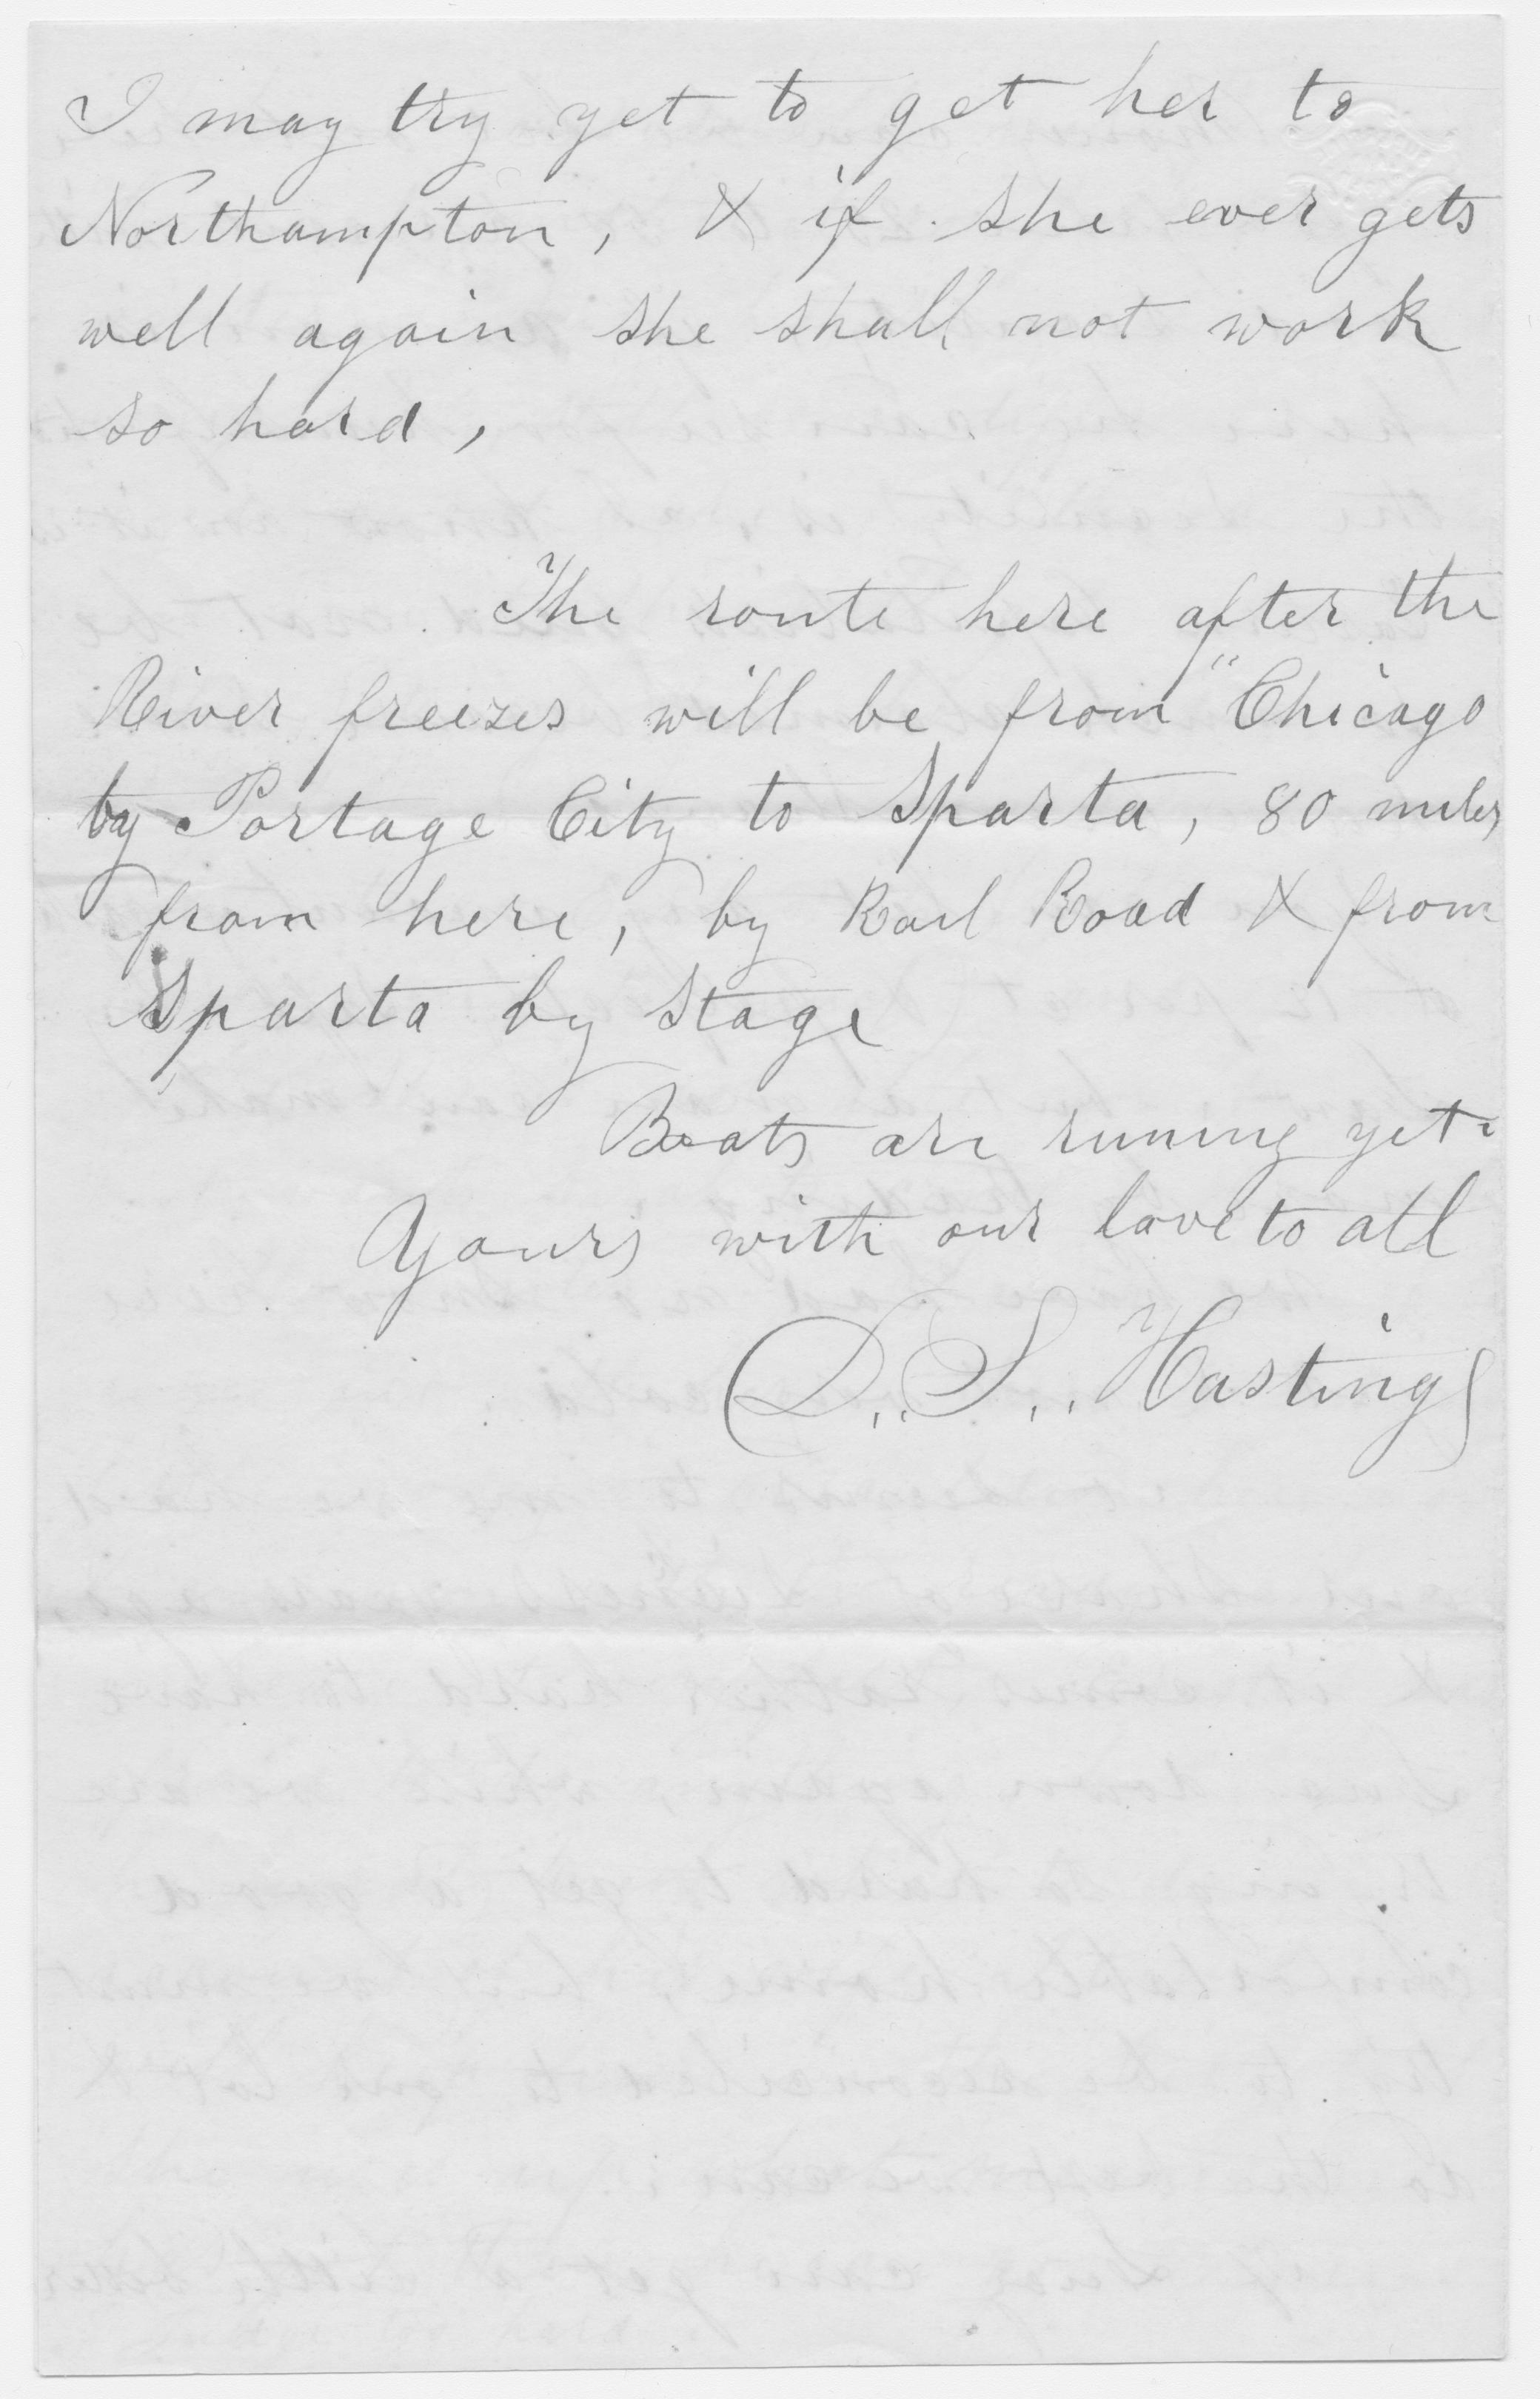 I may try yet to get her to
Northampton, & if she ever gets
well again she shall not work
so hard,
The route here after the
River freezes will be from "Chicago
by Portage City to Sparta, 80 miles
from here, by Rail Road & from
Sparta by Stage
Boats are runing yet.
Yours with our love to all
D. S. Hastings